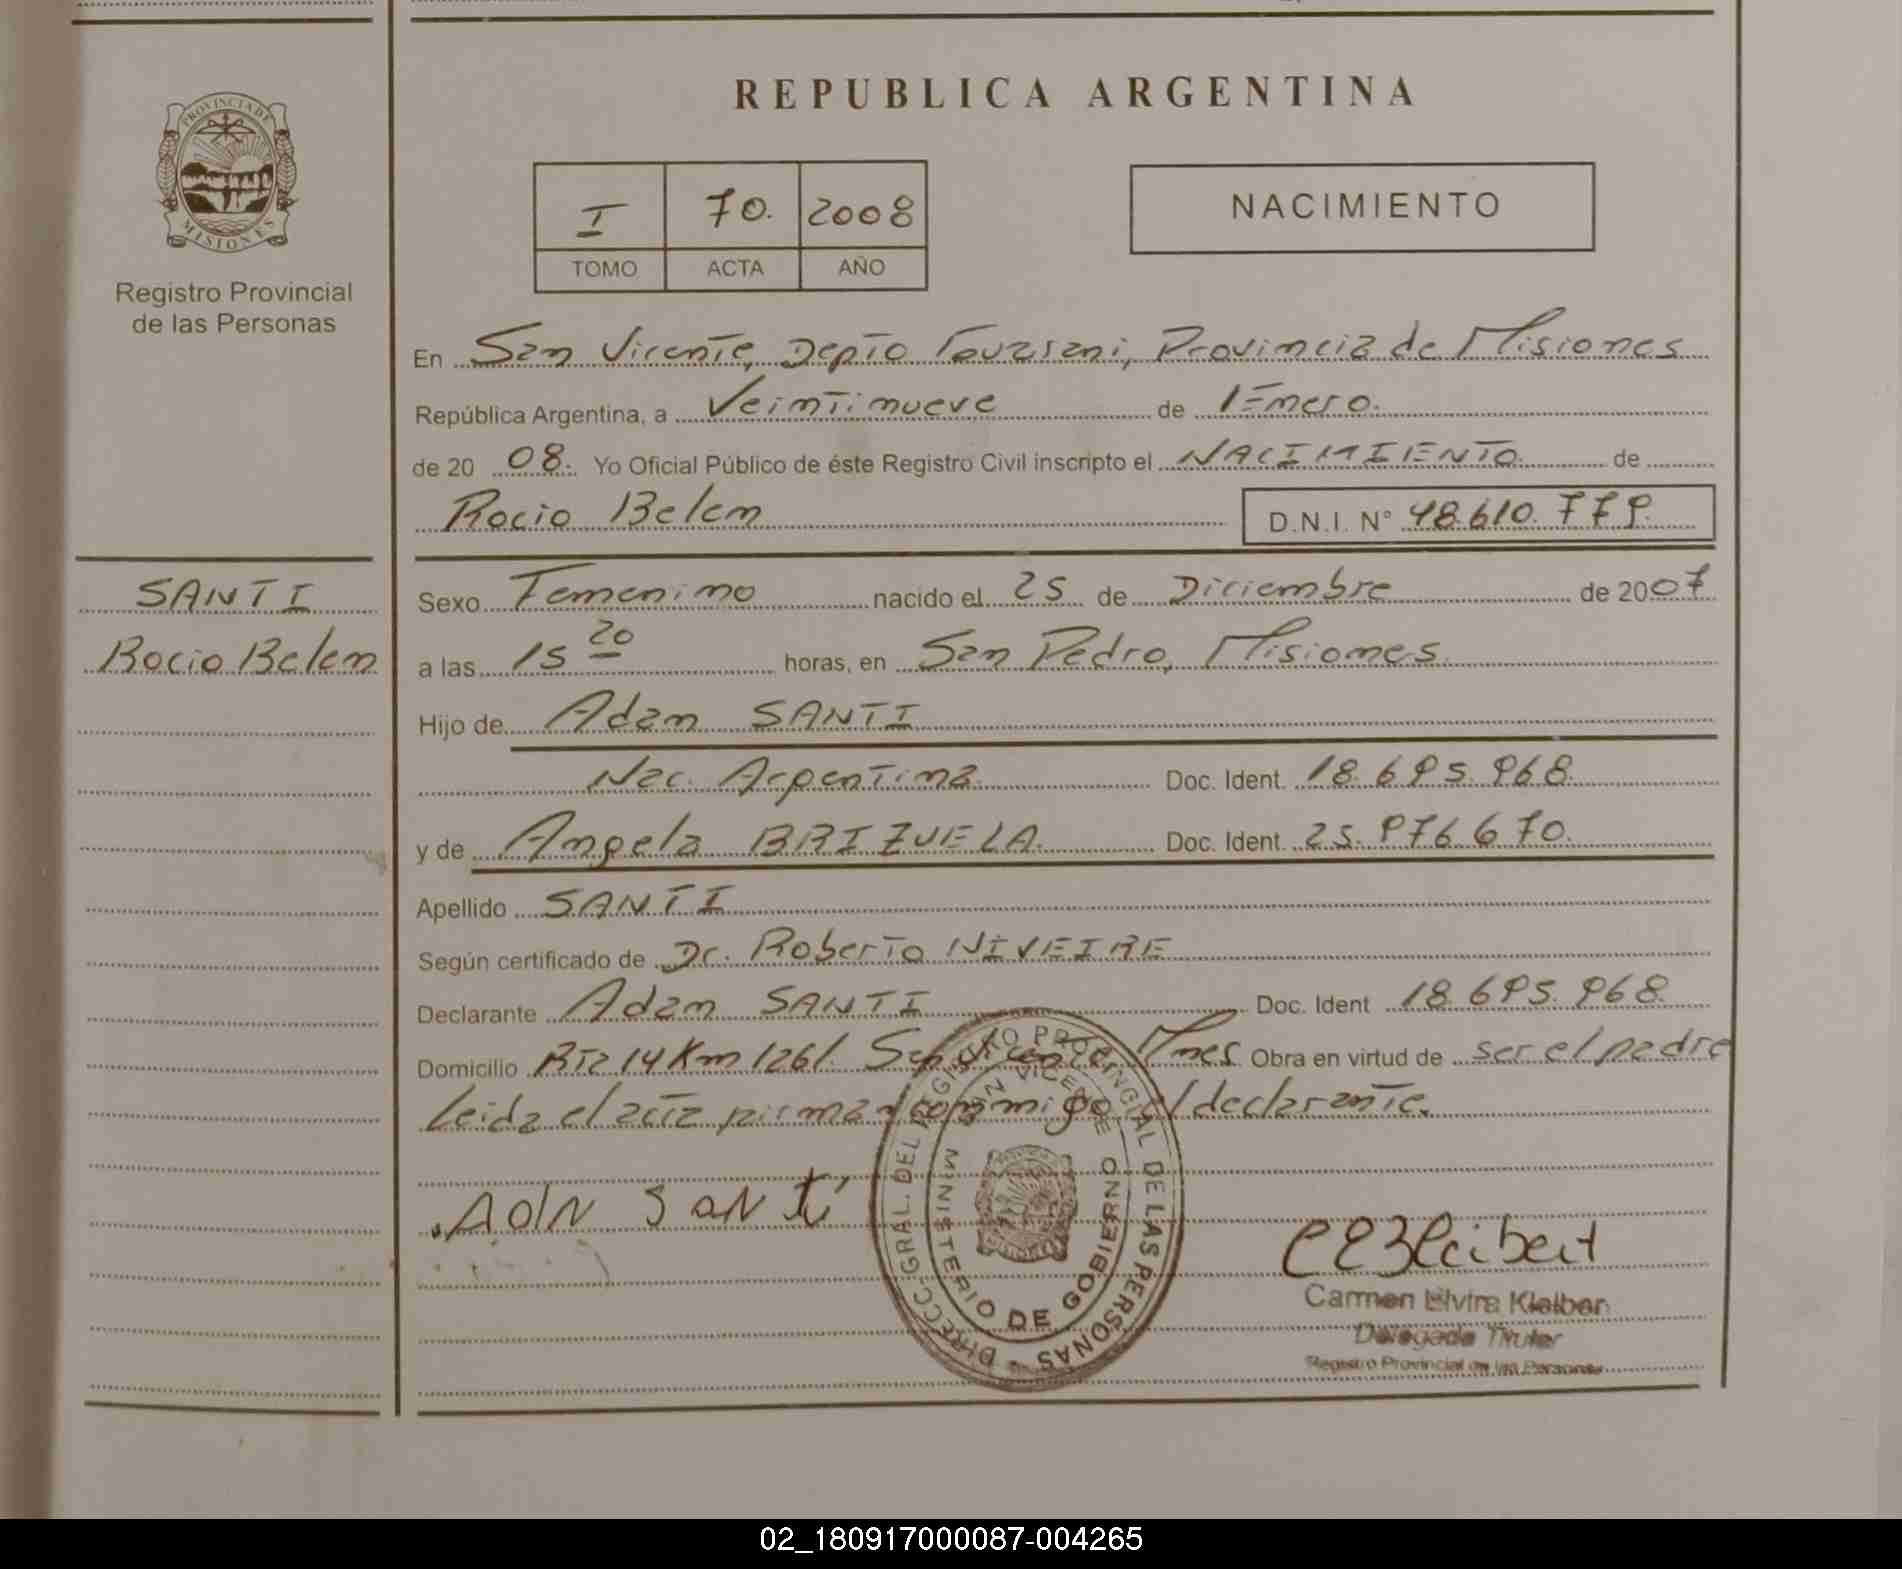 REPUBLICA ARGENTINA
PROVINCIA DE MISIONES
Registro Provincial
de las Personas
I 70. 2008
TOMO ACTA AÑO
NACIMIENTO
En San Vicente, Depto Guaraní, Provincia de Misiones
República Argentina, a Veintinueve de Enero.
de 20 08. Yo Oficial Público de éste Registro Civil inscripto el NACIMIENTO de
Rocio Belen D.N.I. N° 48.610.779.
SANTI
Rocio Belen
Sexo Femenino nacido el 25 de Diciembre de 2007
a las 15 20 horas, en San Pedro, Misiones.
Hijo de Adan SANTI
Nac. Argentina. Doc. Ident. 18.695.968.
y de Angela BRIZUELA. Doc. Ident. 25.976670.
Apellido SANTI
Según certificado de Dr. Roberto NIVEIRE
Declarante Adan SANTI Doc. Ident 18.695.968.
Domicilio Rta 14 Km 1261. San Vicente, Mnes. Obra en virtud de ser el padre
Leida el acta, firman conmigo el declarante.
DIRECC. GRAL. DEL REGISTRO PROVINCIAL DE LAS PERSONAS
SAN VICENTE
MINISTERIO DE GOBIERNO
ADIN SANti
Carmen Elvira Kleiber
Delegada Titular
Registro Provincial de las Personas
02_180917000087-004265